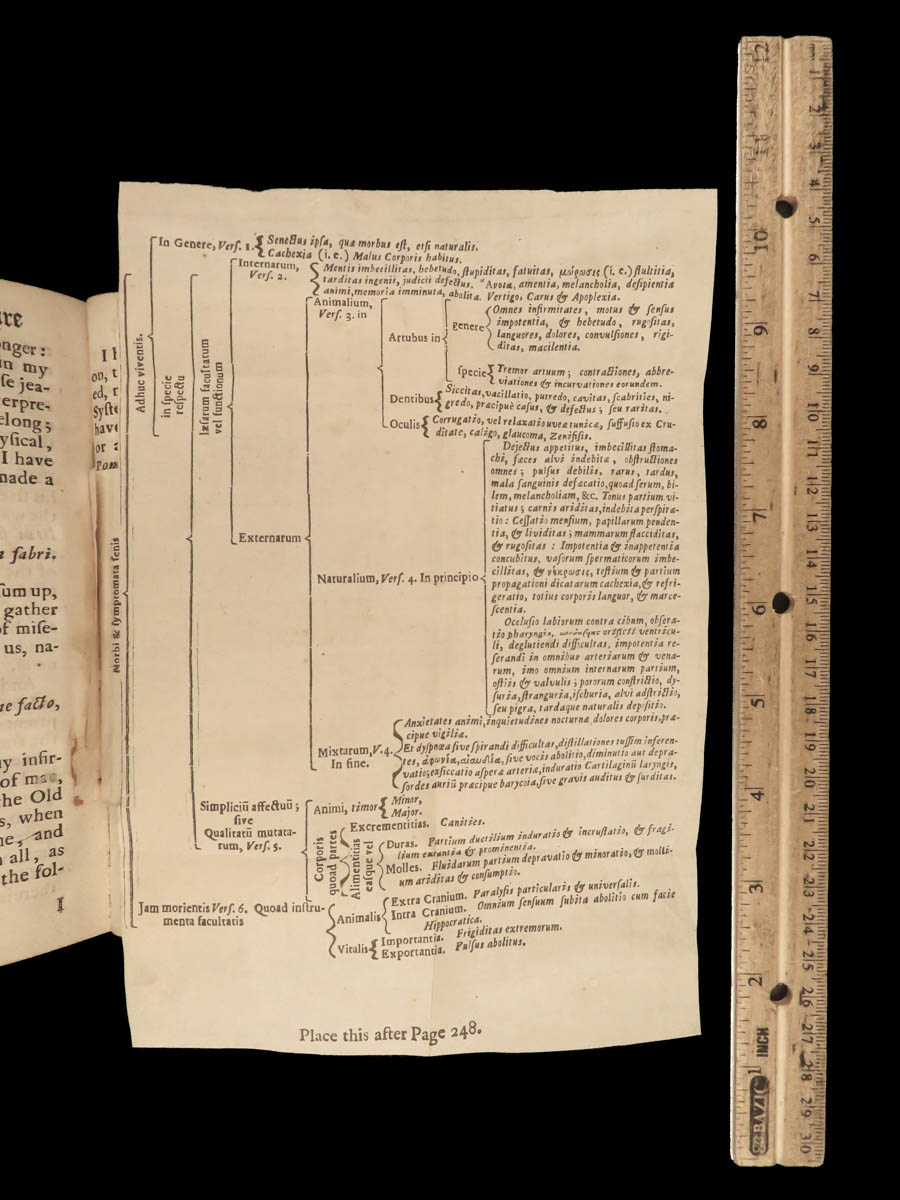 ure
onger:
in my
ſe jea-
erpre-
elong;
yſical,
I have
made a
fabri.
ſum up,
gather
of miſe-
us, na-
ne facto,
ny infir-
of
the Old
s, when
me, and
all, as
the fol-
I
I
on, t
ed,
Syſte
have
or
Pom
Morbi & ſymptomata ſenis
Adhuc viventis.
In Genere, Verſ. 1.
Senectus ipſa, quæ morbus eſt, etſi naturalis.
Cachexia (i. e.) Malus Corporis habitus.
in ſpecie
reſpectu
læſarum facultatum
vel functionum
Internarum,
Verſ. 2.
Mentis imbecillitas, hebetudo, ſtupiditas, fatuitas, μώρωσις (i. e.) ſtultitia,
tarditas ingenii, judicii defectus. Ἄνοια, amentia, melancholia, deſipientia
animi, memoria imminuta, abolita. Vertigo. Carus & Apoplexia.
Externarum
Animalium,
Verſ. 3. in
Artubus in
genere
Omnes infirmitates, motus & ſenſus
impotentia, & hebetudo, rugoſitas,
languores, dolores, convulſiones, rigi-
ditas, macilentia.
ſpecie
Tremor artuum; contractiones, abbre-
viationes & incurvationes eorundem.
Dentibus
Siccitas, vacillatio, putredo, cavitas, ſcabrities, ni-
gredo, præcipuè caſus, & defectus; ſeu raritas.
Oculis
Corrugatio, vel relaxatio uveæ tunicæ, ſuffuſio ex Cru-
ditate, caligo, glaucoma, Zenifiſis.
Naturalium, Verſ. 4. In principio
Dejectus appetitus, imbecillitas ſtoma-
chi, fæces alvi indebitæ, obſtructiones
omnes; pulſus debilis, rarus, tardus,
mala ſanguinis defæcatio, quoad ſerum, bi-
lem, melancholiam, &c. Tonus partium vi-
tiatus; carnis ariditas, indebita perſpira-
tio: Ceſſatio menſium, papillarum penden-
tia, & lividitas; mammarum flacciditas,
& rugoſitas: Impotentia & inappetentia
concubitus, vaſorum ſpermaticorum imbe-
cillitas, & νέκρωσις, teſtium & partium
propagationi dicatarum cachexia, & refri-
geratio, totius corporis languor, & marce-
ſcentia.
Occluſio labiorum contra cibum, obſera-
tio pharyngis, ventricu-
li, deglutiendi difficultas, impotentia re-
ſerandi in omnibus arteriarum & vena-
rum, imo omnium internarum partium,
oſtiis & valvulis; pororum conſtrictio, dy-
ſuria, ſtranguria, iſchuria, alvi adſtrictio,
ſeu pigra, tardaque naturalis depoſitio.
Mixtarum, V. 4.
In fine.
Anxietates animi, inquietudines nocturnæ, dolores corporis, præ-
cipue vigiliæ.
Et dyſpnœa ſive ſpirandi difficultas, diſtillationes tuſſim inferen-
tes, ἀφωνία, ſive vocis abolitio, diminutio aut depra-
vatio; exſiccatio aſperæ arteriæ, induratio Cartilaginū laryngis,
ſordes auriū præcipue barycoia, ſive gravis auditus & ſurditas.
Simpliciū affectuū;
ſive
Qualitatū mutata-
rum, Verſ. 5.
Animi, timor
Minor,
Major.
Corporis
quoad partes
Excrementitias. Canities.
Alimentitias
eaſque vel
Duras. Partium ductilium induratio & incruſtatio, & fragi-
lium & prominentia.
Molles. Fluidarum partium depravatio & minoratio, & molli-
um ariditas & conſumptio.
Jam morientis Verſ. 6. Quoad inſtru-
menta facultatis
Animalis
Extra Cranium. Paralyſis particularis & univerſalis.
Intra Cranium. Omnium ſenſuum ſubita abolitio cum facie
Hippocratica.
Vitalis
Importantia. Frigiditas extremorum.
Exportantia. Pulſus abolitus.
Place this after Page 248.
12
10
9
8
7
6
5
4
3
2
1 INCH
1
2
3
4
5
6
7
8
9
10
11
12
13
14
15
16
17
18
19
20
21
22
23
24
25
26
27
28
29
30